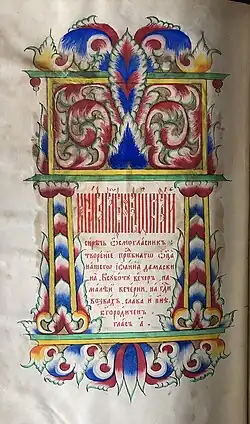 сирѣчь Ѻсмогласникъ
творенїе прпⷣбнагѡ Ѻц҃а
нашегѡ Іѡанна дамаски
на. В сꙋбботꙋ вечеръ, на
малѣй вечерни, на гдⷭ҇и
воззвахъ, слава и нн҃ѣ
бгородиченъ
гласъ а҃